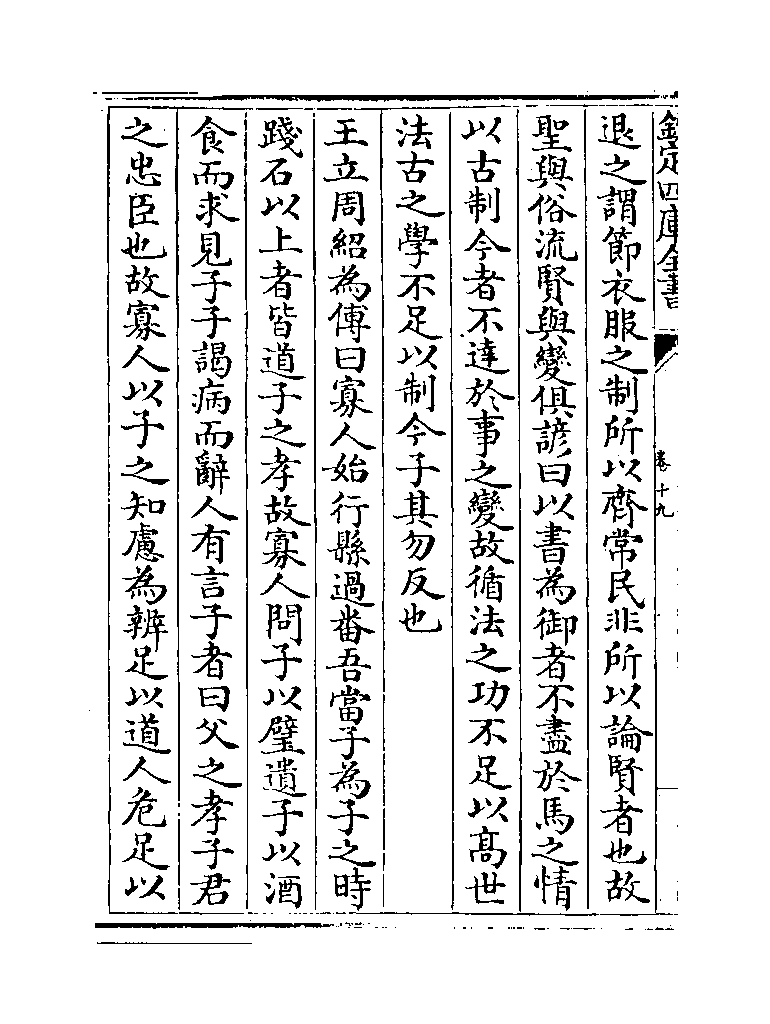 欽定四庫全書
卷十九
退之謂節衣服之制所以齊常民非所以論賢者也故
聖與俗流賢與變俱諺曰以書為御者不盡於馬之情
以古制今者不達於事之變故循法之功不足以髙世
法古之學不足以制今子其勿反也
王立周紹為傅曰寡人始行縣過番吾當子為子之時
踐石以上者皆道子之孝故寡人問子以璧遺子以酒
食而求見子子謁病而辭人有言子者曰父之孝子君
之忠臣也故寡人以子之知慮為辨足以道人危足以